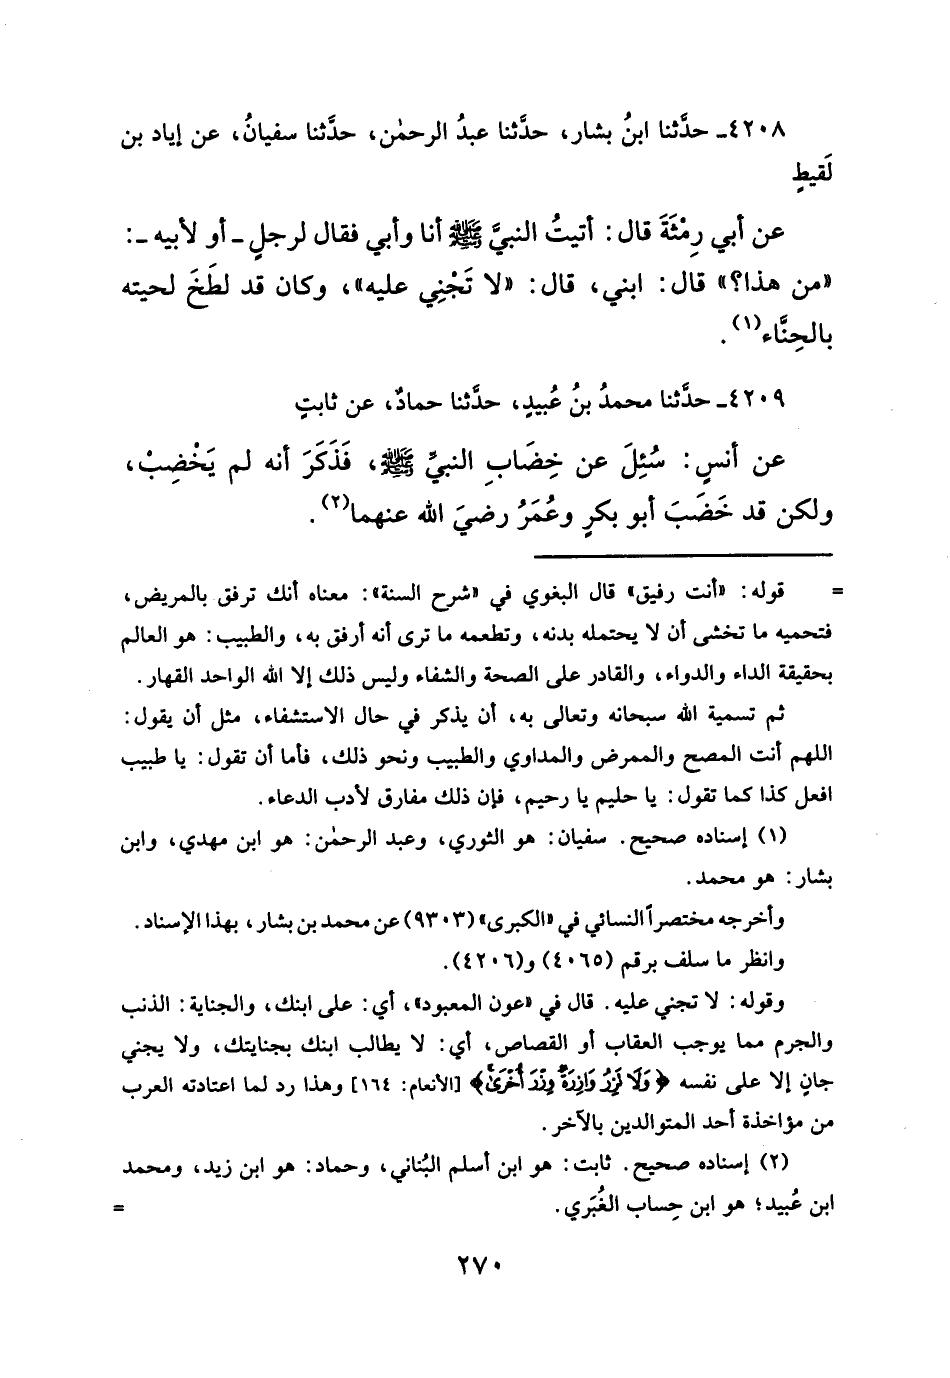 ٤٢٠٨ـ حدَّثنا ابنُ بشار، حدَّثنا عبدُ الرحمٰن، حدَّثنا سفيانُ، عن إياد بن
لَقيطٍ
عن أبي رِمْثَةَ قال: أتيتُ النبيَّ ﷺ أنا وأبي فقال لرجلٍ ـ أو لأبيه ـ:
«من هذا؟» قال: ابني، قال: «لا تَجْنِي عليه»، وكان قد لطَخَ لحيته
بالحِنَّاء(١).
٤٢٠٩ـ حدَّثنا محمدُ بنُ عُبيدٍ، حدَّثنا حمادٌ، عن ثابتٍ
عن أنسٍ: سُئِلَ عن خِضَابِ النبيِّ ﷺ، فَذَكَرَ أنه لم يَخْضِبْ،
ولكن قد خَضَبَ أبو بكرٍ وعُمَرُ رضيَ الله عنهما(٢).
= قوله: «أنت رفيق» قال البغوي في «شرح السنة»: معناه أنك ترفق بالمريض،
فتحميه ما تخشى أن لا يحتمله بدنه، وتطعمه ما ترى أنه أرفق به، والطبيب: هو العالم
بحقيقة الداء والدواء، والقادر على الصحة والشفاء وليس ذلك إلا الله الواحد القهار.
ثم تسمية الله سبحانه وتعالى به، أن يذكر في حال الاستشفاء، مثل أن يقول:
اللهم أنت المصح والممرض والمداوي والطبيب ونحو ذلك، فأما أن تقول: يا طبيب
افعل كذا كما تقول: يا حليم يا رحيم، فإن ذلك مفارق لأدب الدعاء.
(١) إسناده صحيح. سفيان: هو الثوري، وعبد الرحمٰن: هو ابن مهدي، وابن
بشار: هو محمد.
وأخرجه مختصراً النسائي في «الكبرى» (٩٣٠٣) عن محمد بن بشار، بهذا الإسناد.
وانظر ما سلف برقم (٤٠٦٥) و(٤٢٠٦).
وقوله: لا تجني عليه. قال في «عون المعبود»، أي: على ابنك، والجناية: الذنب
والجرم مما يوجب العقاب أو القصاص، أي: لا يطالب ابنك بجنايتك، ولا يجني
جانٍ إلا على نفسه ﴿وَلَا تَزِرُ وَازِرَةٌ وِزْرَ أُخْرَىٰ﴾ [الأنعام: ١٦٤] وهذا رد لما اعتادته العرب
من مؤاخذة أحد المتوالدين بالآخر.
(٢) إسناده صحيح. ثابت: هو ابن أسلم البُناني، وحماد: هو ابن زيد، ومحمد
ابن عُبيد؛ هو ابن حِساب الغُبَري. =
٢٧٠